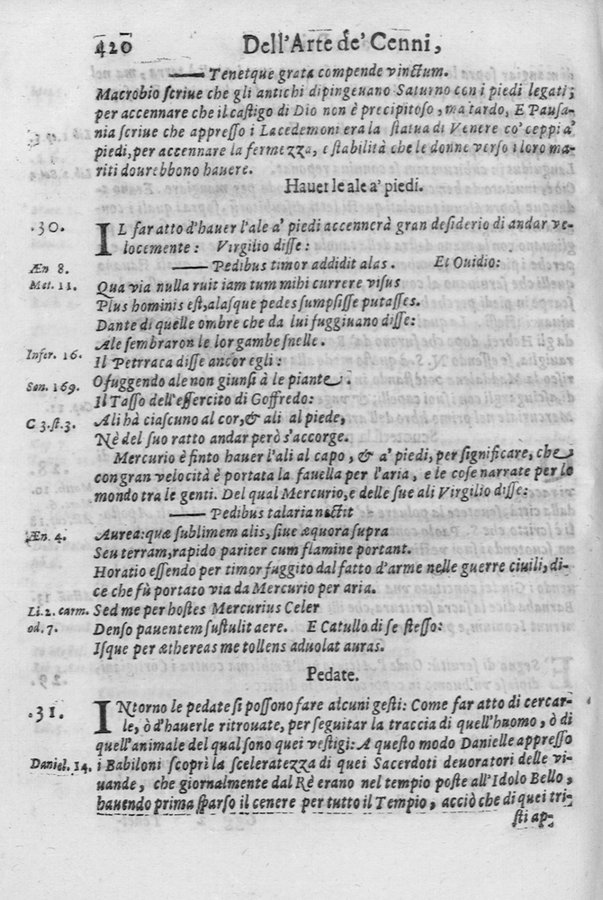 420 Dell'Arte de' Cenni,
—— Tenetque grata compende vinctum.
Macrobio scriue che gli antichi dipingeuano Saturno con i piedi legati;
per accennare che il castigo di Dio non è precipitoso, ma tardo, E Pausa-
nia scriue che appresso i Lacedemoni era la statua di Venere co' ceppi a'
piedi, per accennare la fermezza, e stabilità che le donne verso i loro ma-
riti dourebbono hauere.
Hauer le ale a' piedi.
.30. IL far atto d'hauer l'ale a' piedi accennerà gran desiderio di andar ve-
locemente: Virgilio disse:
Æn 8. —— Pedibus timor addidit alas. Et Ouidio:
Met. 11. Qua via nulla ruit iam tum mihi currere visus
Plus hominis est, alasque pedes sumpsisse putasses.
Dante di quelle ombre che da lui fuggiuano disse:
Infer. 16. Ale sembraron le lor gambe snelle.
Il Petrraca disse ancor egli:
Son. 169. O fuggendo ale non giunsi à le piante.
Il Tasso dell'essercito di Goffredo:
C 3. st. 3. Ali hà ciascuno al cor, & ali al piede,
Nè del suo ratto andar però s'accorge.
Mercurio è finto hauer l'ali al capo, & a' piedi, per significare, che
con gran velocità è portata la fauella per l'aria, e le cose narrate per lo
mondo tra le genti. Del qual Mercurio, e delle sue ali Virgilio disse:
—— Pedibus talaria nectit
Æn. 4. Aurea: quæ sublimem alis, siue æquora supra
Seu terram, rapido pariter cum flamine portant.
Horatio essendo per timor fuggito dal fatto d'arme nelle guerre ciuili, di-
ce che fù portato via da Mercurio per aria.
Li. 2. carm. Sed me per hostes Mercurius Celer
od. 7. Denso pauentem sustulit aere. E Catullo di se stesso:
Isque per æthereas me tollens aduolat auras.
Pedate.
.31. INtorno le pedate si possono fare alcuni gesti: Come far atto di cercar-
le, ò d'hauerle ritrouate, per seguitar la traccia di quell'huomo, ò di
quell'animale del qual sono quei vestigi: A questo modo Danielle appresso
Daniel. 14. i Babiloni scoprì la sceleratezza di quei Sacerdoti deuoratori delle vi-
uande, che giornalmente dal Rè erano nel tempio poste all'Idolo Bello,
hauendo prima sparso il cenere per tutto il Tempio, acciò che di quei tri-
sti ap-